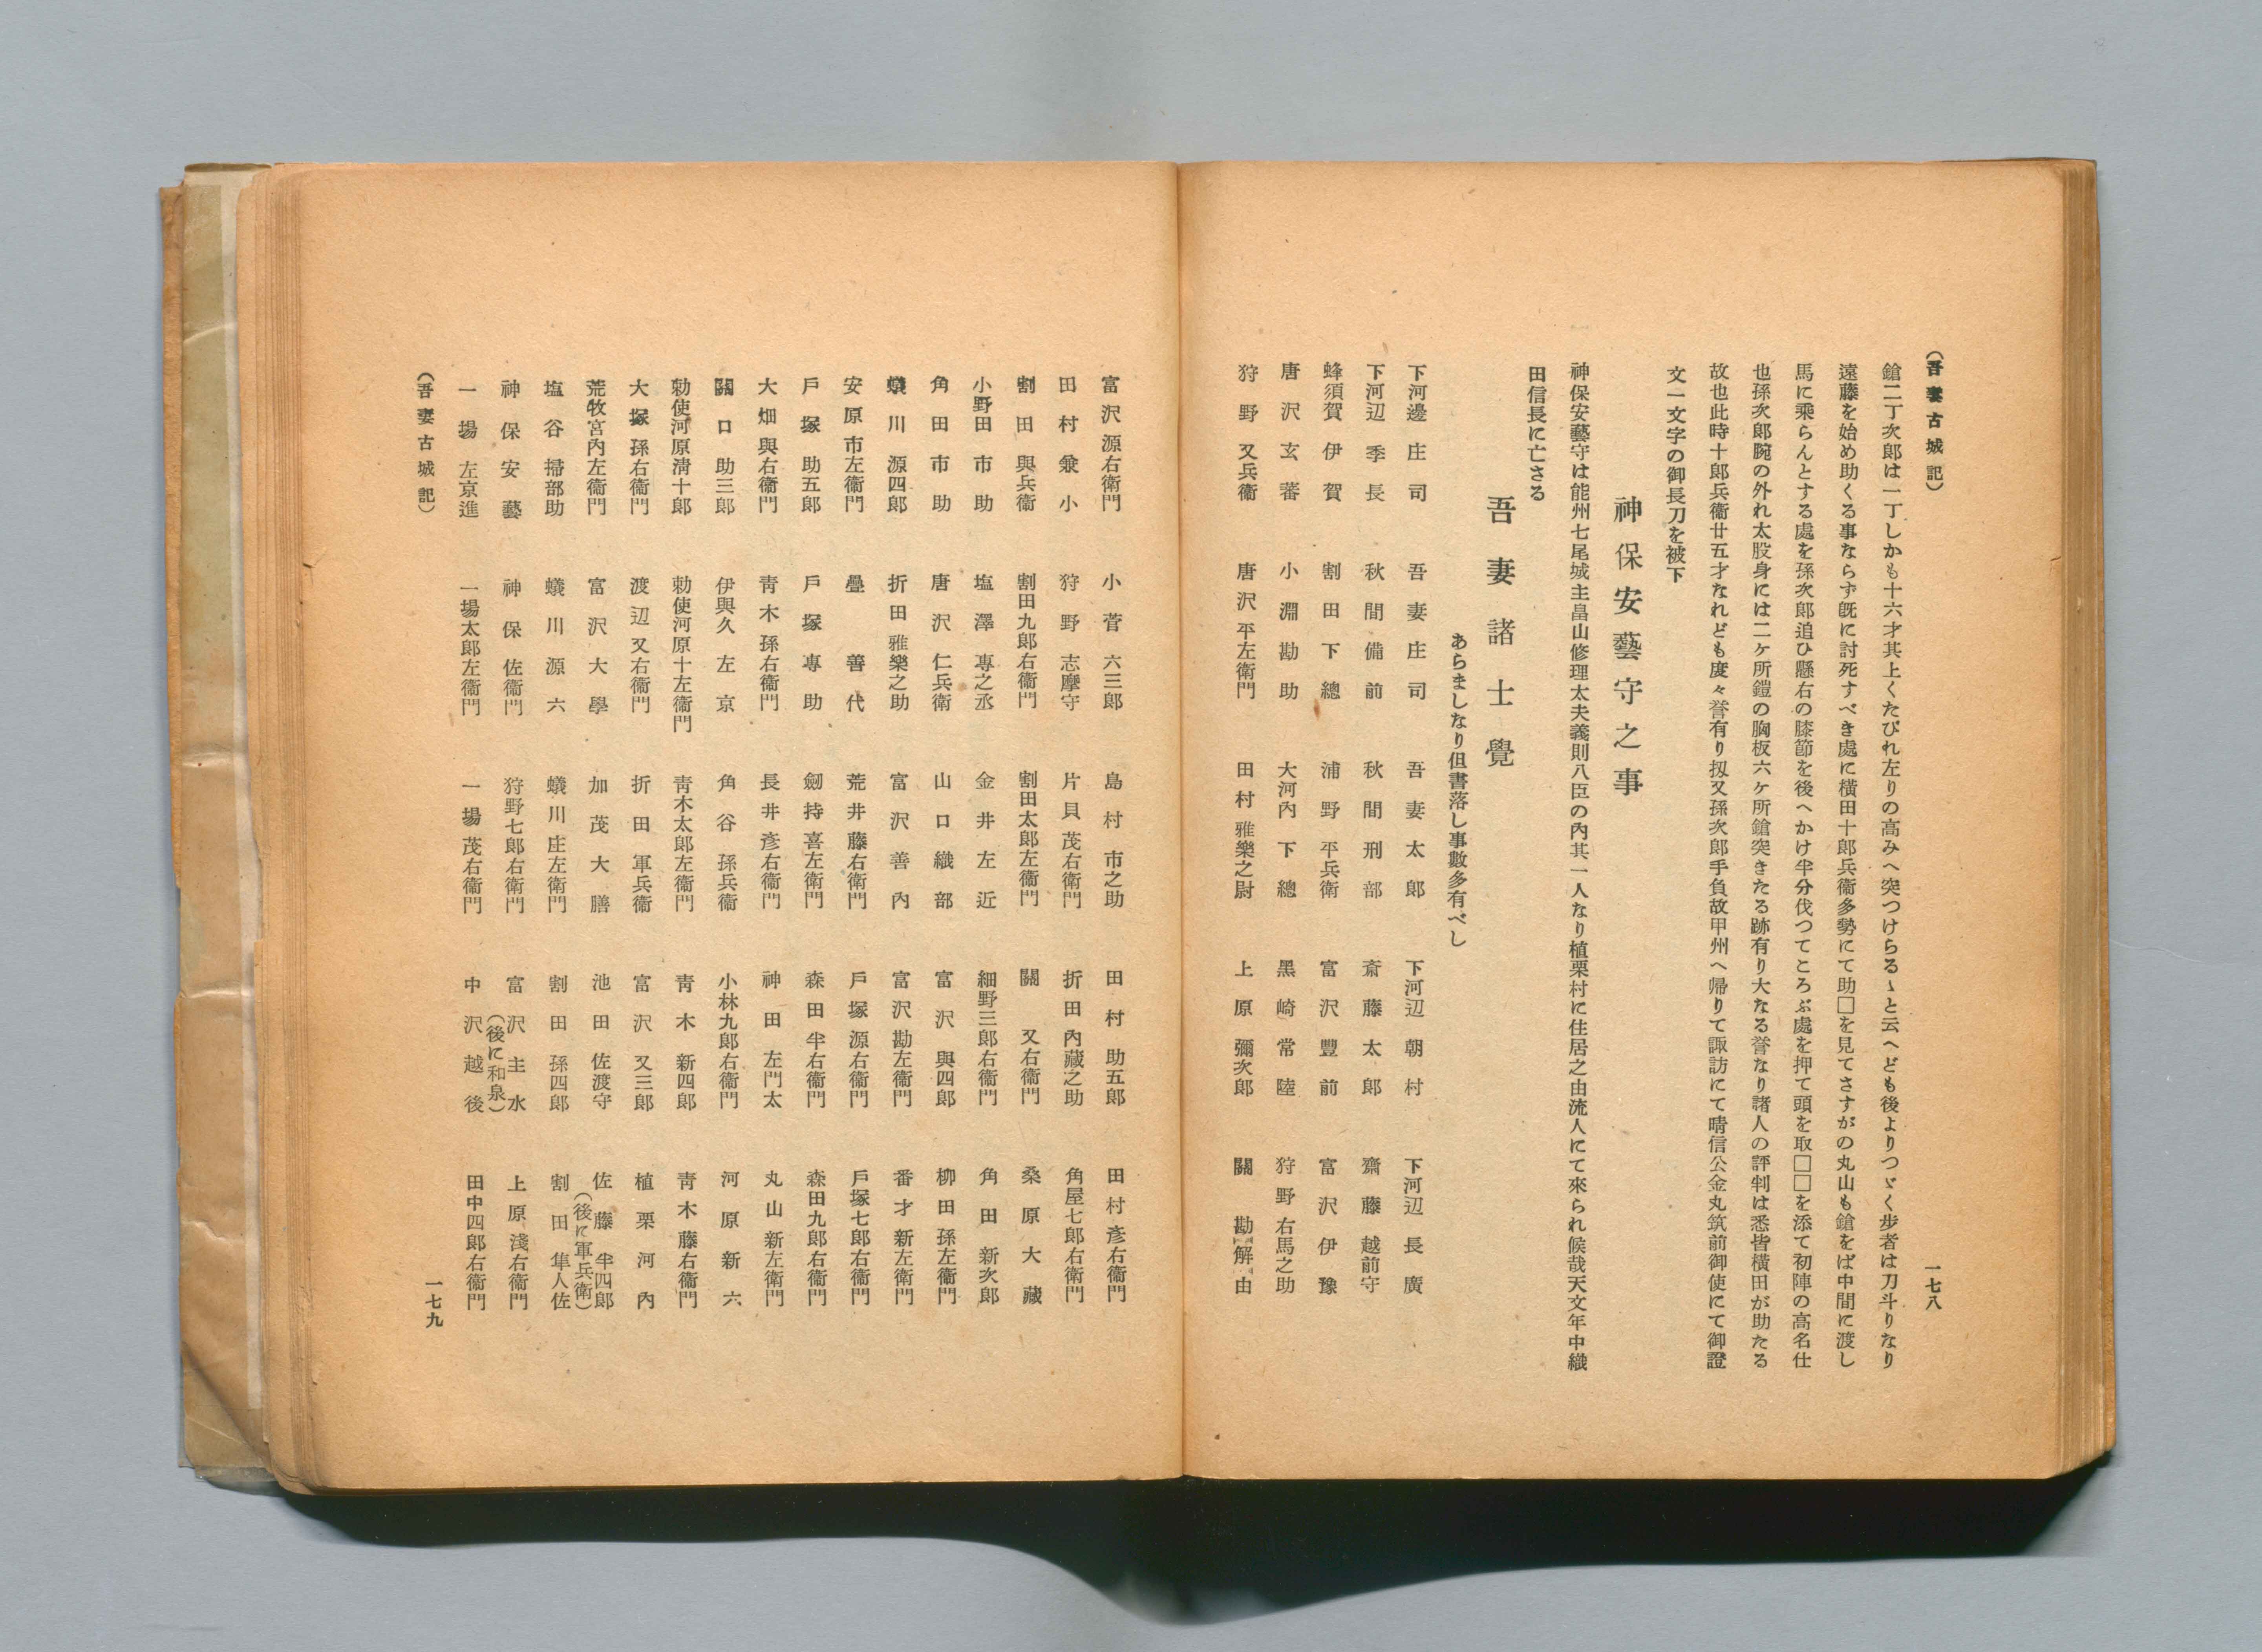 (吾妻古城記)
一七八
鎗二丁次郎は一丁しかも十六才其上くたびれ左りの高みへ突つけらるゝと云へども後よりつゞく歩者は刀斗りなり
遠藤を始め助くる事ならず既に討死すべき處に横田十郎兵衞多勢にて助□を見てさすがの丸山も鎗をば中間に渡し
馬に乘らんとする處を孫次郎追ひ懸右の膝節を後へかけ半分伐つてころぶ處を押て頭を取□□を添て初陣の高名仕
也孫次郎腕の外れ太股身には二ケ所鎧の胸板六ケ所鎗突きたる跡有り大なる誉なり諸人の評判は悉皆横田が助たる
故也此時十郎兵衞廿五才なれども度々誉有り扨又孫次郎手負故甲州へ帰りて諏訪にて晴信公金丸筑前御使にて御證
文一文字の御長刀を被下
神保安藝守之事
神保安藝守は能州七尾城主畠山修理太夫義則八臣の內其一人なり植栗村に住居之由流人にて來られ候哉天文年中織
田信長に亡さる
吾妻諸士覺
あらましなり但書落し事數多有べし
下河邊庄司　吾妻庄司　吾妻太郎　下河辺朝村　下河辺長廣
下河辺季長　秋間備前　秋間刑部　斎藤太郎　齋藤越前守
蜂須賀伊賀　割田下總　浦野平兵衛　富沢豐前　富沢伊豫
唐沢玄蕃　小淵勘助　大河內下總　黑崎常陸　狩野右馬之助
狩野又兵衞　唐沢平左衛門　田村雅樂之尉　上原彌次郎　關勘解由
富沢源右衛門　小菅六三郎　島村市之助　田村助五郎　田村彥右衛門
田村兼小　狩野志摩守　片貝茂右衛門　折田內藏之助　角屋七郎右衛門
割田與兵衞　割田九郎右衞門　割田太郎左衞門　關又右衞門　桑原大藏
小野田市助　塩澤專之丞　金井左近　細野三郎右衞門　角田新次郎
角田市助　唐沢仁兵衛　山口織部　富沢與四郎　柳田孫左衞門
蟻川源四郎　折田雅樂之助　富沢善內　富沢勘左衞門　番才新左衛門
安原市左衞門　疊善代　荒井藤右衞門　戶塚源右衞門　戶塚七郎右衞門
戶塚助五郎　戶塚專助　劔持喜左衛門　森田半右衞門　森田九郎右衞門
大畑與右衞門　靑木孫右衞門　長井彥右衞門　神田左門太　丸山新左衛門
關口助三郎　伊與久左京　角谷孫兵衞　小林九郎右衞門　河原新六
勅使河原淸十郎　勅使河原十左衞門　靑木太郎左衞門　靑木新四郎　靑木藤右衞門
大塚孫右衞門　渡辺又右衞門　折田軍兵衞　富沢又三郎　植栗河內
荒牧宮內左衞門　富沢大學　加茂大膳　池田佐渡守　佐藤半四郎
(後に軍兵衛)
塩谷掃部助　蟻川源六　蟻川庄左衛門　割田孫四郎　割田隼人佐
神保安藝　神保佐衞門　狩野七郎右衛門　富沢主水　上原淺右衞門
(後に和泉)
一場左京進　一場太郎左衞門　一場茂右衞門　中沢越後　田中四郎右衞門
(吾妻古城記)
一七九